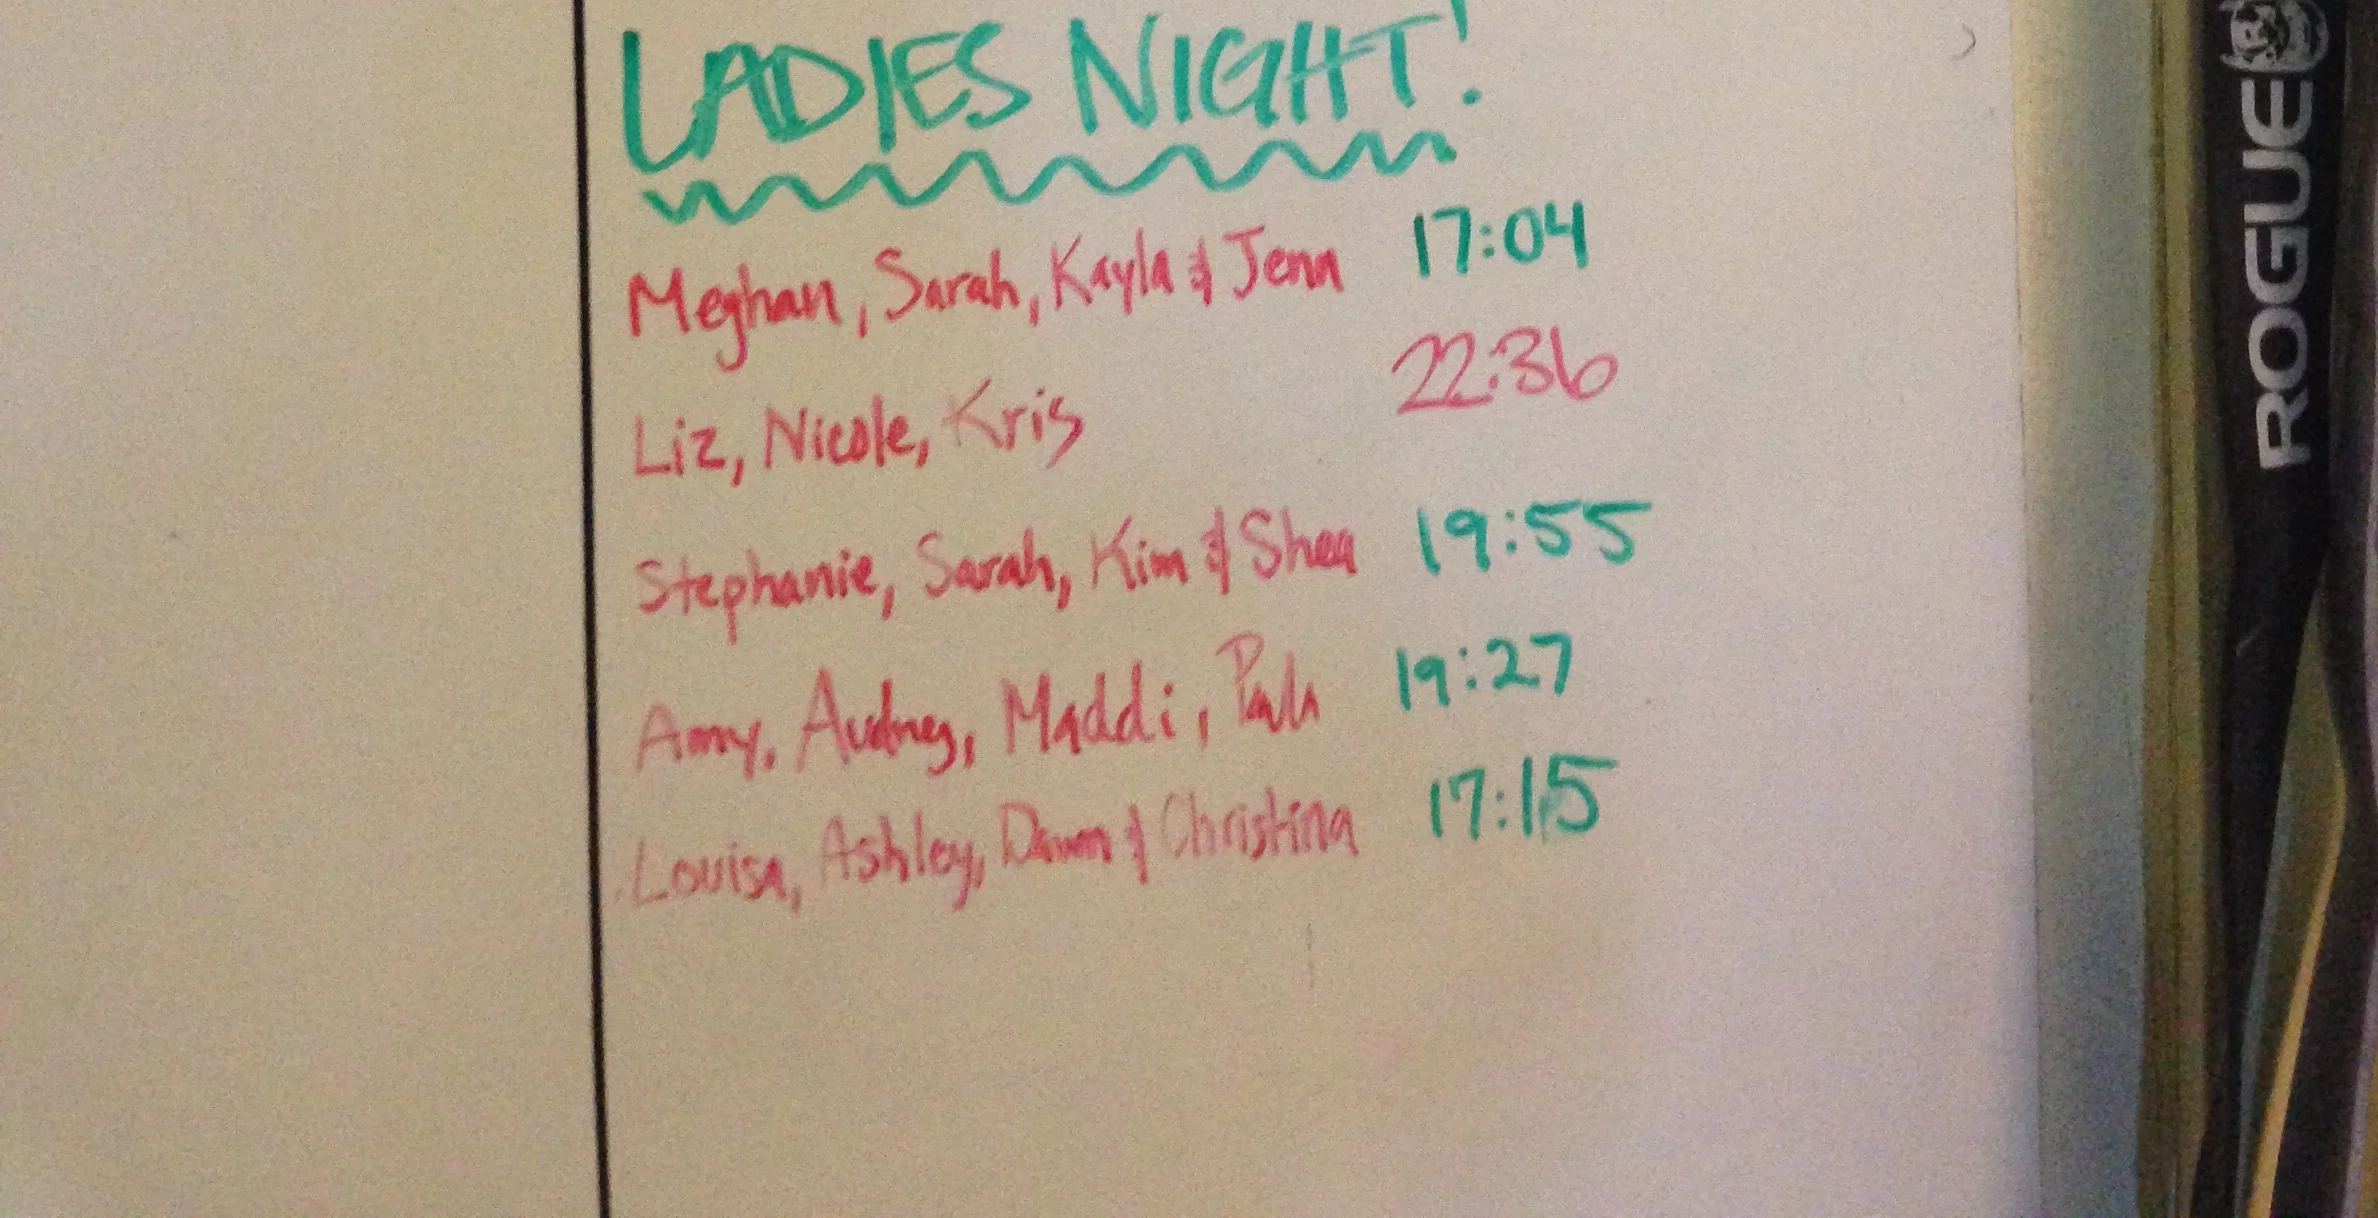 LADIES NIGHT!
Meghan, Sarah, Kayla & Jenn 17:04
Liz, Nicole, Kris 22:36
Stephanie, Sarah, Kim & Shea 19:55
Amy, Audrey, Maddi, 19:27
Louisa, Ashley, Dawn & Christina 17:15
ROGUE